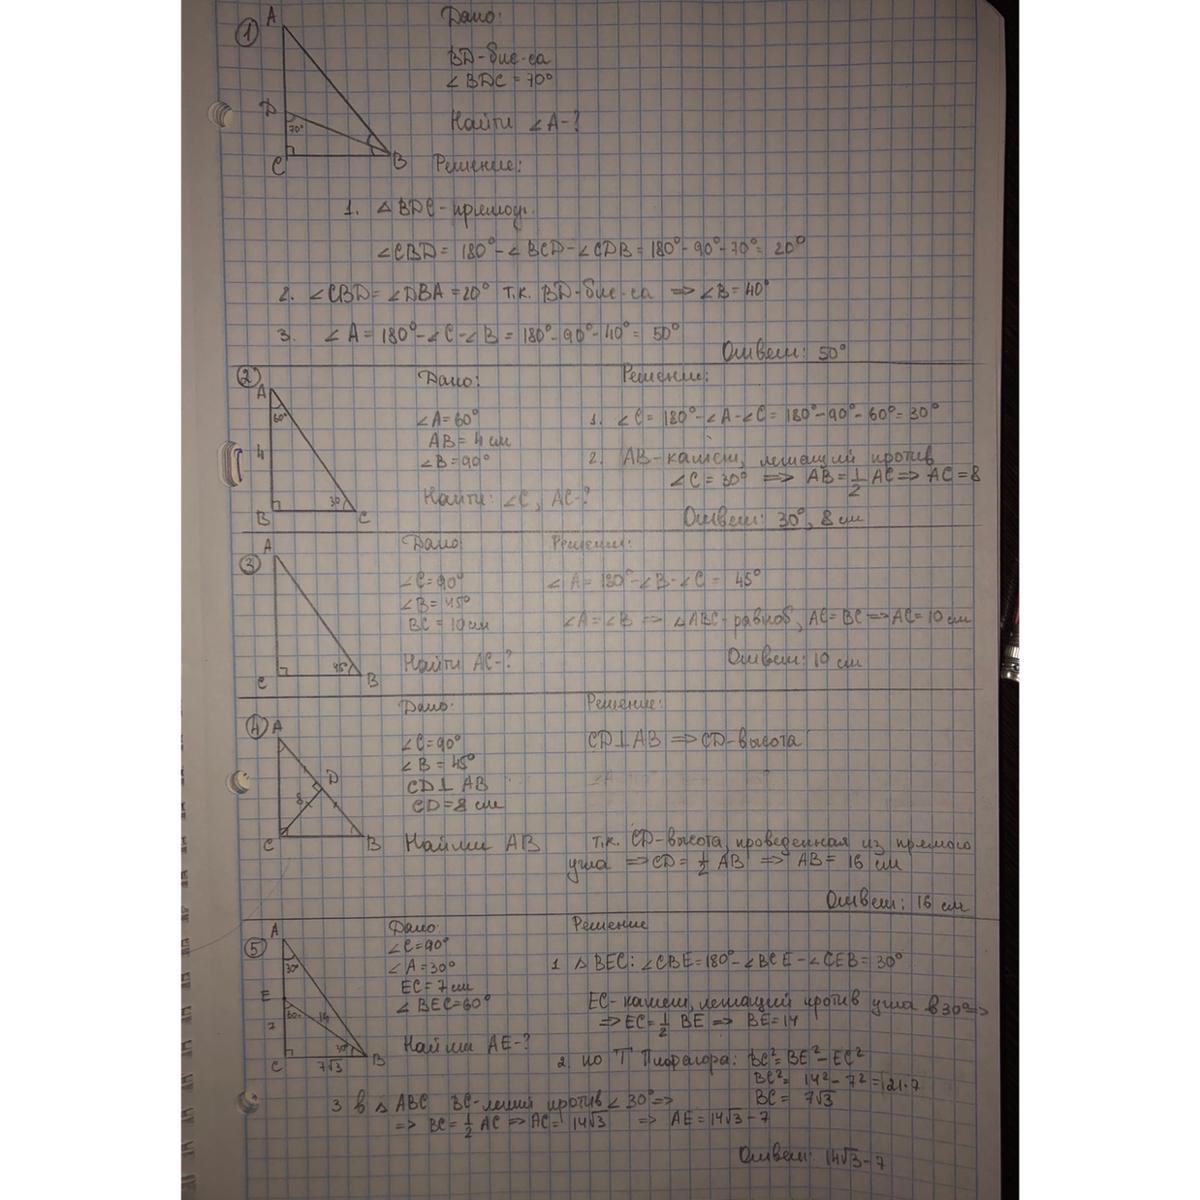 1
A
D
70°
C
B
Дано:
BD-бис-са
∠BDC = 70°
Найти ∠A-?
Решение:
1. △BDC-прямоуг.
∠CBD = 180°-∠BCD-∠CDB = 180°-90°-70° = 20°
2. ∠CBD = ∠DBA = 20° т.к. BD-бис-са ⇒ ∠B = 40°
3. ∠A = 180°-∠C-∠B = 180°-90°-40° = 50°
Ответ: 50°
2
A
60°
4
B
30
C
Дано:
∠A = 60°
AB = 4 см
∠B = 90°
Найти: ∠C, AC-?
Решение:
1. ∠C = 180°-∠A-∠C = 180°-90°-60° = 30°
2. AB-катет, лежащий против
∠C = 30° ⇒ AB = 1/2 AC ⇒ AC = 8
Ответ: 30°, 8 см
3
A
C
45°
B
Дано:
∠C = 90°
∠B = 45°
BC = 10 см
Найти AC-?
Решение:
∠A = 180°-∠B-∠C = 45°
∠A = ∠B ⇒ ∠ABC-равноб, AC = BC ⇒ AC = 10 см
Ответ: 10 см
4
A
D
8
C
B
Дано:
∠C = 90°
∠B = 45°
CD⊥AB
CD = 8 см
Найти AB
Решение:
CD⊥AB ⇒ CD-высота
т.к. CD-высота, проведенная из прямого
угла ⇒ CD = 1/2 AB ⇒ AB = 16 см
Ответ: 16 см
5
A
30°
E
60°
14
7
C
7√3
30°
B
Дано
∠C = 90°
∠A = 30°
EC = 7 см
∠BEC = 60°
Найти AE-?
Решение
1 △BEC: ∠CBE = 180°-∠BCE-∠CEB = 30°
EC-катет, лежащий против угла в 30° ⇒
⇒ EC = 1/2 BE ⇒ BE = 14
2. по Т Пифагора: BC² = BE²-EC²
BC² = 14²-7² = 21·7
BC = 7√3
3 в △ABC BC-лежит против ∠30° ⇒
⇒ BC = 1/2 AC ⇒ AC = 14√3 ⇒ AE = 14√3-7
Ответ: 14√3-7